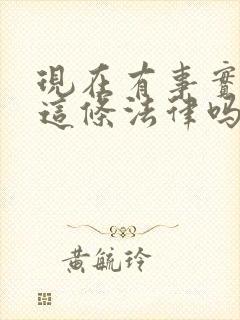 現在有事實
這條法律嗎
黃毓玲